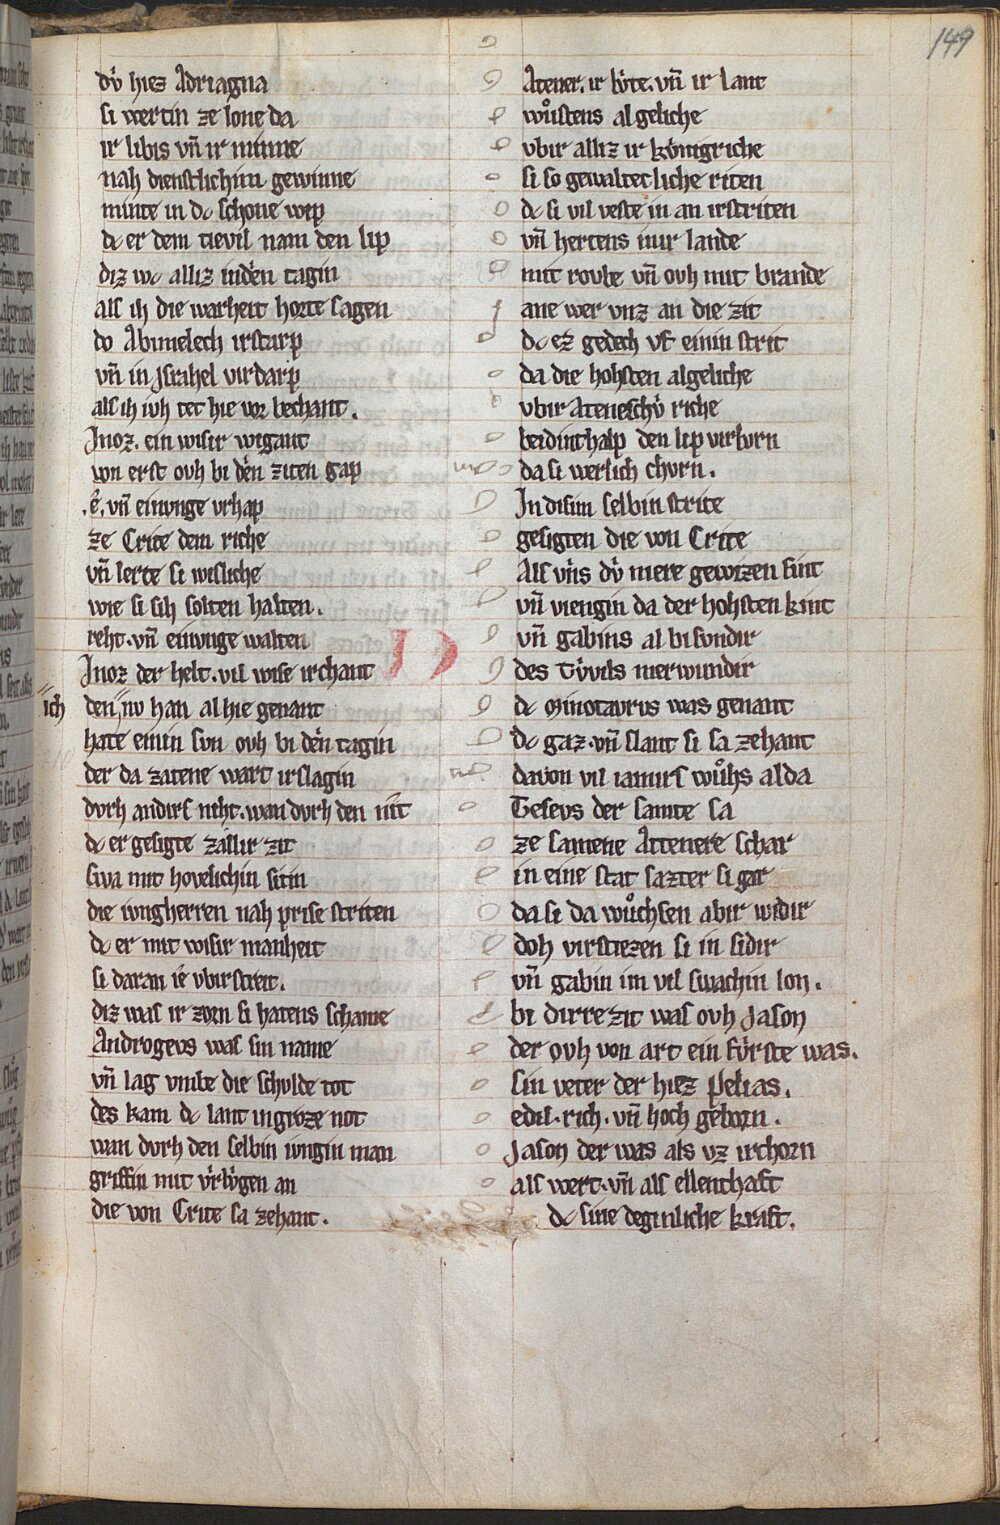 149
dv̍ hiez Adriagna
si wertin ze lone da
ir libis vn̄ ir minne
nah dienstlichim gewinne
minte in dc schone wip
dc er dem tievil nam den lip
diz wc alliz inden tagin
als ih die warheit horte sagen
do Abimelech irstarp
vn̄ in Jsrahel virdarp
als ih ivh tet hie vor bechant.
Jnoz. ein wisir wigant
von erst ovh bi den ziten gap
.e. vn̄ einvnge vrhap
ze Crite dem riche
vn̄ lerte si wisliche
wie si sih solten halten.
reht. vn̄ einvnge walten
Jnoz der helt. vil wise irchant
ich den nv han alhie genant
hate einin svn ovh bi den tagin
der da zatene wart irslagin
dvrh andirs niht. wan dvrh den nit
dc er gesigte zallir zit
swa mit hovelichin sitin
die ivngherren nah prise striten
dc er mit wisir manheit
si daran ie vbirstreit.
diz was ir zorn si hatens schame
Androgevs was sin name
vn̄ lag vmbe die schvlde tot
des kam dc lant in groze not
wan dvrh den selbin ivngin man
griffin mit vrlvgen an
die von Crite sa zehant.
Atener. ir lv̍te. vn̄ ir lant
wůstens al geliche
vbir alliz ir kv̍nigriche
si so gewaltecliche riten
dc si vil veste in an irstriten
vn̄ hertens inir lande
mit rovbe vn̄ ovh mit brande
ane wer vnz an die zit
dc ez gedech vf einin strit
da die hohsten algeliche
vbir Ateneschv̍ riche
beidinthalp den lip virlvrn
da si werlich chvrn.
Jn disim selbin strite
gesigten die von Crite
Als vns dv̍ mere gewizen sint
vn̄ viengin da der hohsten kint
vn̄ gabins al bisvndir
des Tv̍vils merwundir
dc Minotavrvs was genant
dc gaz. vn̄ slant si sa zehant
davon vil iamirs wůhs alda
Tesevs der samte sa
ze samene Attenere schar
in eine stat sazter si gar
da si da wůchsen abir widir
doh virstiezen si in sidir
vn̄ gabin im vil swachin lon.
bi dirre zit was ovh Jason
der ovh von art ein fv̍rste was.
sin veter der hiez Pelias.
edil. rich. vn̄ hoch geborn.
Jason der was als vz irchorn
als wert. vn̄ als ellenthaft
dc sine deginliche kraft.